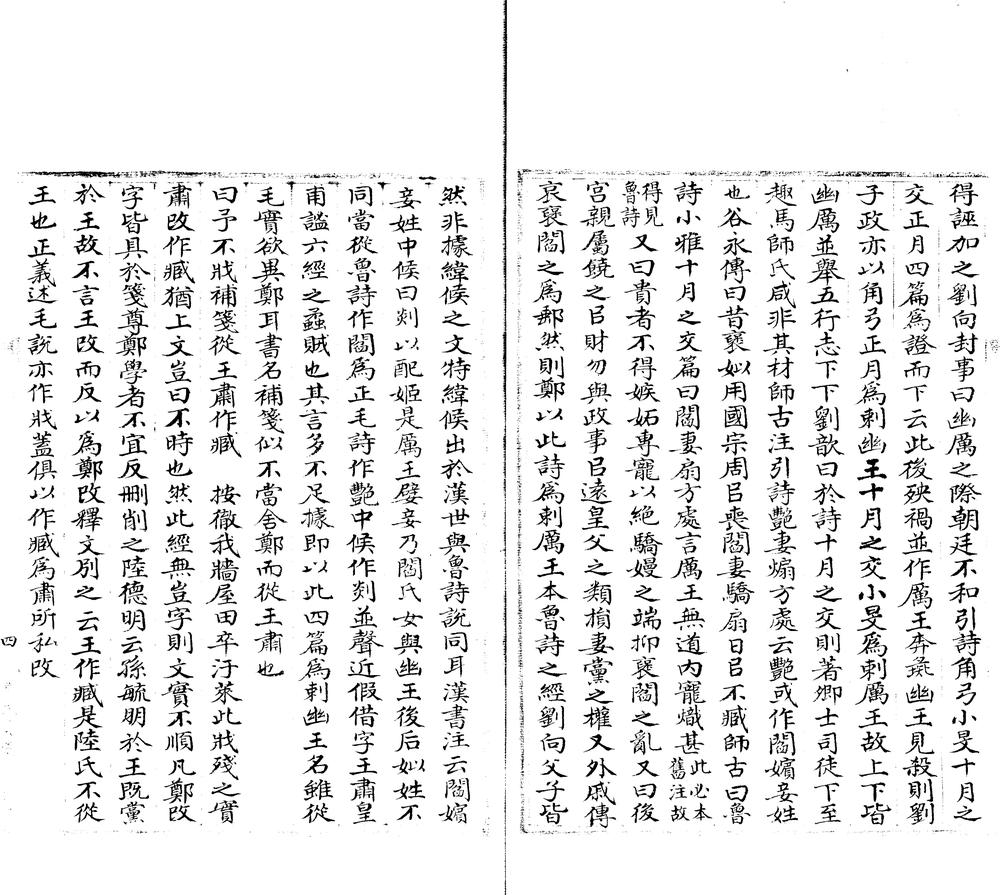 得誣加之劉向封事曰幽厲之際朝廷不和引詩角弓小旻十月之
交正月四篇為證而下云此後殃禍並作厲王奔彘幽王見殺則劉
子政亦以角弓正月為刺幽王十月之交小旻為刺厲王故上下皆
幽厲並舉五行志下下劉歆曰於詩十月之交則著卿士司徒下至
趣馬師氏咸非其材師古注引詩豔妻煽方處云豔或作閻嬪妾姓
也谷永傳曰昔襃姒用國宗周㠯喪閻妻驕扇日㠯不臧師古曰魯
詩小雅十月之交篇曰閻妻扇方處言厲王無道內寵熾甚此必本舊注故
得見魯詩又曰貴者不得嫉妬專寵以絶驕嫚之端抑襃閻之亂又曰後
宮親屬饒之㠯財勿與政事㠯遠皇父之類損妻黨之權又外戚傳
哀襃閻之為郵然則鄭以此詩為刺厲王本魯詩之經劉向父子皆
然非據緯候之文特緯候出於漢世與魯詩說同耳漢書注云閻嬪
妾姓中候曰剡以配姬是厲王嬖妾乃閻氏女與幽王後后姒姓不
同當從魯詩作閻為正毛詩作艷中候作剡並聲近假借字王肅皇
甫謐六經之蟊賊也其言多不足據即以此四篇為刺幽王名雖從
毛實欲異鄭耳書名補箋似不當舍鄭而從王肅也
曰予不戕補箋從王肅作臧 按徹我牆屋田卒汙萊此戕殘之實
肅改作臧猶上文豈曰不時也然此經無豈字則文實不順凡鄭改
字皆具於箋尊鄭學者不宜反刪削之陸德明云孫毓朙於王既黨
於王故不言王改而反以為鄭改釋文別之云王作臧是陸氏不從
王也正義述毛說亦作戕蓋俱以作臧為肅所私改
四